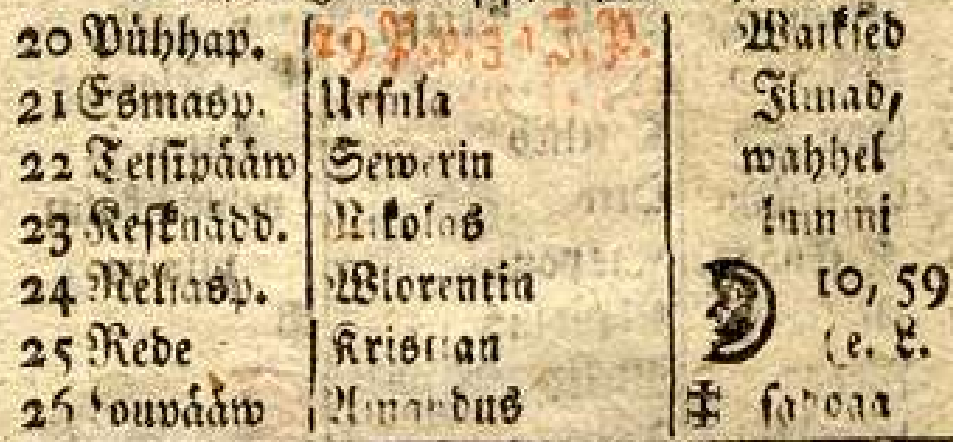 20 Pühhap. 29 P. p. 3 1 J. P.
21 Esmasp. Ursula Ilmad,
22 Teisipääw Sewerin wahhel
23 Kesknädd. Nikolas
24 Neljasp. Wlorentin 10, 59
25 Rede Kristian e. L.
26 Loupääw Amandus sadoga